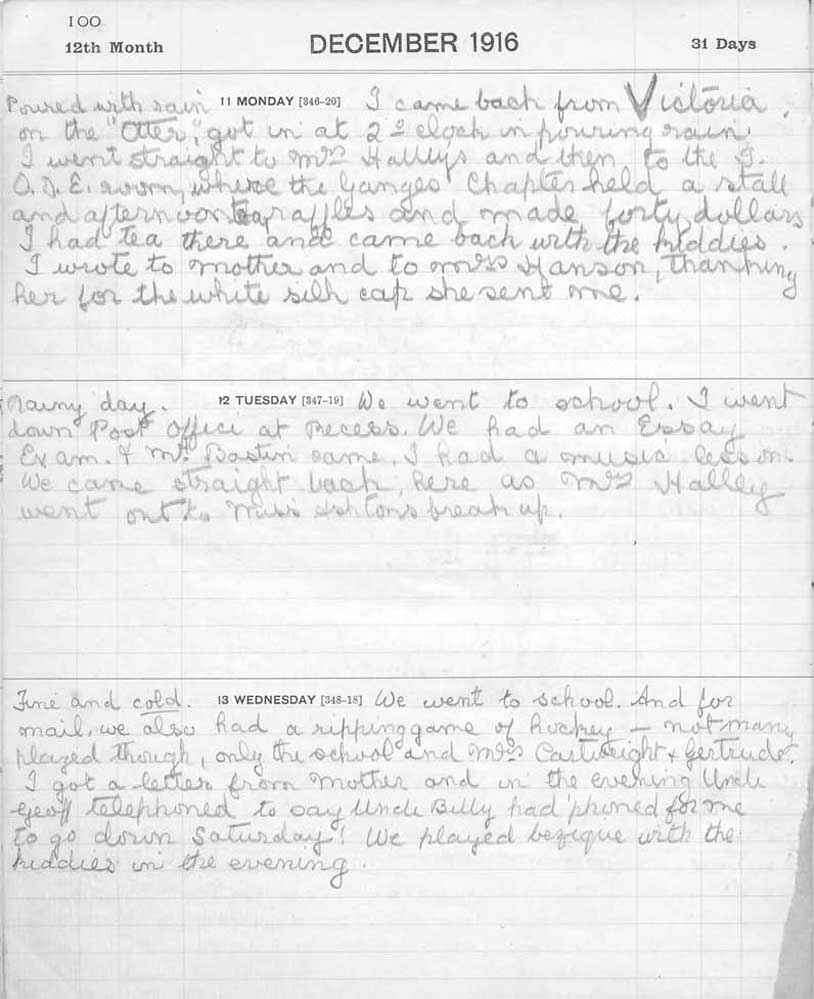 100
12th Month DECEMBER 1916 31 Days
Poured with rain 11 MONDAY [346-20] I came back from Victoria.
on the "Otter", got in at 2 o clock in pouring rain.
I went straight to Mrs Halleys and then to the I.
O. D. E. room, where the Ganges Chapter held a stall
and afternoon tea, raffles and made forty dollars
I had tea there and came back with the kiddies.
I wrote to Mother and to Mrs Hanson, thanking
her for the white silk cap she sent me.
Rainy day. 12 TUESDAY [347-19] We went to school. I went
down Post Office at Recess. We had an Essay
Exam. & Mr. Bastin came. I had a music lesson.
We came straight back, here as Mrs Halley
went out to Miss Ashtons break up.
Fine and cold. 13 WEDNESDAY [348-18] We went to school. And for
mail, we also had a ripping game of hockey – not many
played though, only the school and Mrs Cartwright & Gertrude.
I got a letter from Mother and in the evening Uncle
Geoff telephoned to say Uncle Billy had 'phoned for me
to go down Saturday! We played bezique with the
kiddies in the evening.